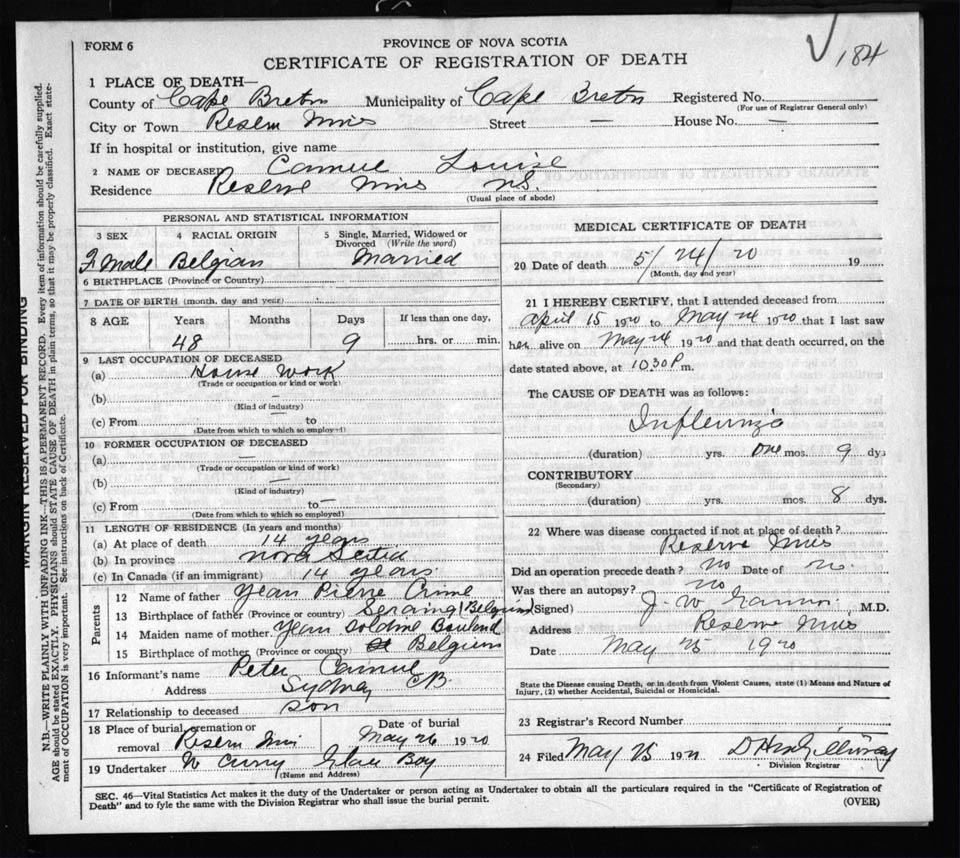 184
FORM 6
PROVINCE OF NOVA SCOTIA
CERTIFICATE OF REGISTRATION OF DEATH
1 PLACE OF DEATH—
County of Cape Breton Municipality of Cape Breton Registered No.
(For use of Registrar General only)
City or Town Reserve Mines Street — House No. —
If in hospital or institution, give name
2 NAME OF DECEASED Camue Louise
Residence Reserve Mines N.S.
(Usual place of abode)
PERSONAL AND STATISTICAL INFORMATION
3 SEX 4 RACIAL ORIGIN 5 Single, Married, Widowed or Divorced (Write the word)
Female Belgian Married
6 BIRTHPLACE (Province or Country)
7 DATE OF BIRTH (month, day and year)
8 AGE Years Months Days If less than one day,
48 9 hrs. or min.
9 LAST OCCUPATION OF DECEASED
(a) House Work
(Trade or occupation or kind or work)
(b) —
(Kind of industry)
(c) From — to
(Date from which to which so employed)
10 FORMER OCCUPATION OF DECEASED
(a) —
(Trade or occupation or kind of work)
(b) —
(Kind of industry)
(c) From to —
(Date from which to which so employed)
11 LENGTH OF RESIDENCE (In years and months)
(a) At place of death 14 years
(b) In province Nova Scotia
(c) In Canada (if an immigrant) 14 years
Parents
12 Name of father Jean Pierre Crime
13 Birthplace of father (Province or country) Seraing (Belgium)
14 Maiden name of mother Jean
15 Birthplace of mother (Province or country) Belgium
16 Informant's name Peter Camue
Address Sydney CB.
17 Relationship to deceased son
18 Place of burial, cremation or removal Reserve Mines Date of burial May 26 1920
19 Undertaker W Curry Glace Bay
(Name and Address)
MEDICAL CERTIFICATE OF DEATH
20 Date of death 5/24/20 19
(Month, day and year)
21 I HEREBY CERTIFY, that I attended deceased from
April 15 1920 to May 24 1920 that I last saw
her alive on May 24 1920 and that death occurred, on the
date stated above, at 10.30 P. m.
The CAUSE OF DEATH was as follows:
Influenza
(duration) yrs. One mos. 9 dys
CONTRIBUTORY
(Secondary)
(duration) yrs. mos. 8 dys.
22 Where was disease contracted if not at place of death?
Reserve Mines
Did an operation precede death? no Date of no.
Was there an autopsy? no
(Signed) J. W. M.D.
Address Reserve Mines
Date May 25 1920
State the Disease causing Death, or in death from Violent Causes, state (1) Means and Nature of
Injury, (2) whether Accidental, Suicidal or Homicidal.
23 Registrar's Record Number
24 Filed May 25 1920
Division Registrar
SEC. 46—Vital Statistics Act makes it the duty of the Undertaker or person acting as Undertaker to obtain all the particulars required in the "Certificate of Registration of
Death" and to fyle the same with the Division Registrar who shall issue the burial permit.
(OVER)
MARGIN RESERVED FOR BINDING
N.B.—WRITE PLAINLY WITH UNFADING INK—THIS IS A PERMANENT RECORD. Every item of information should be carefully supplied.
AGE should be stated EXACTLY. PHYSICIANS should STATE CAUSE OF DEATH in plain terms, so that it may be properly classified. Exact state-
ment of OCCUPATION is very important. See instructions on back of Certificate.